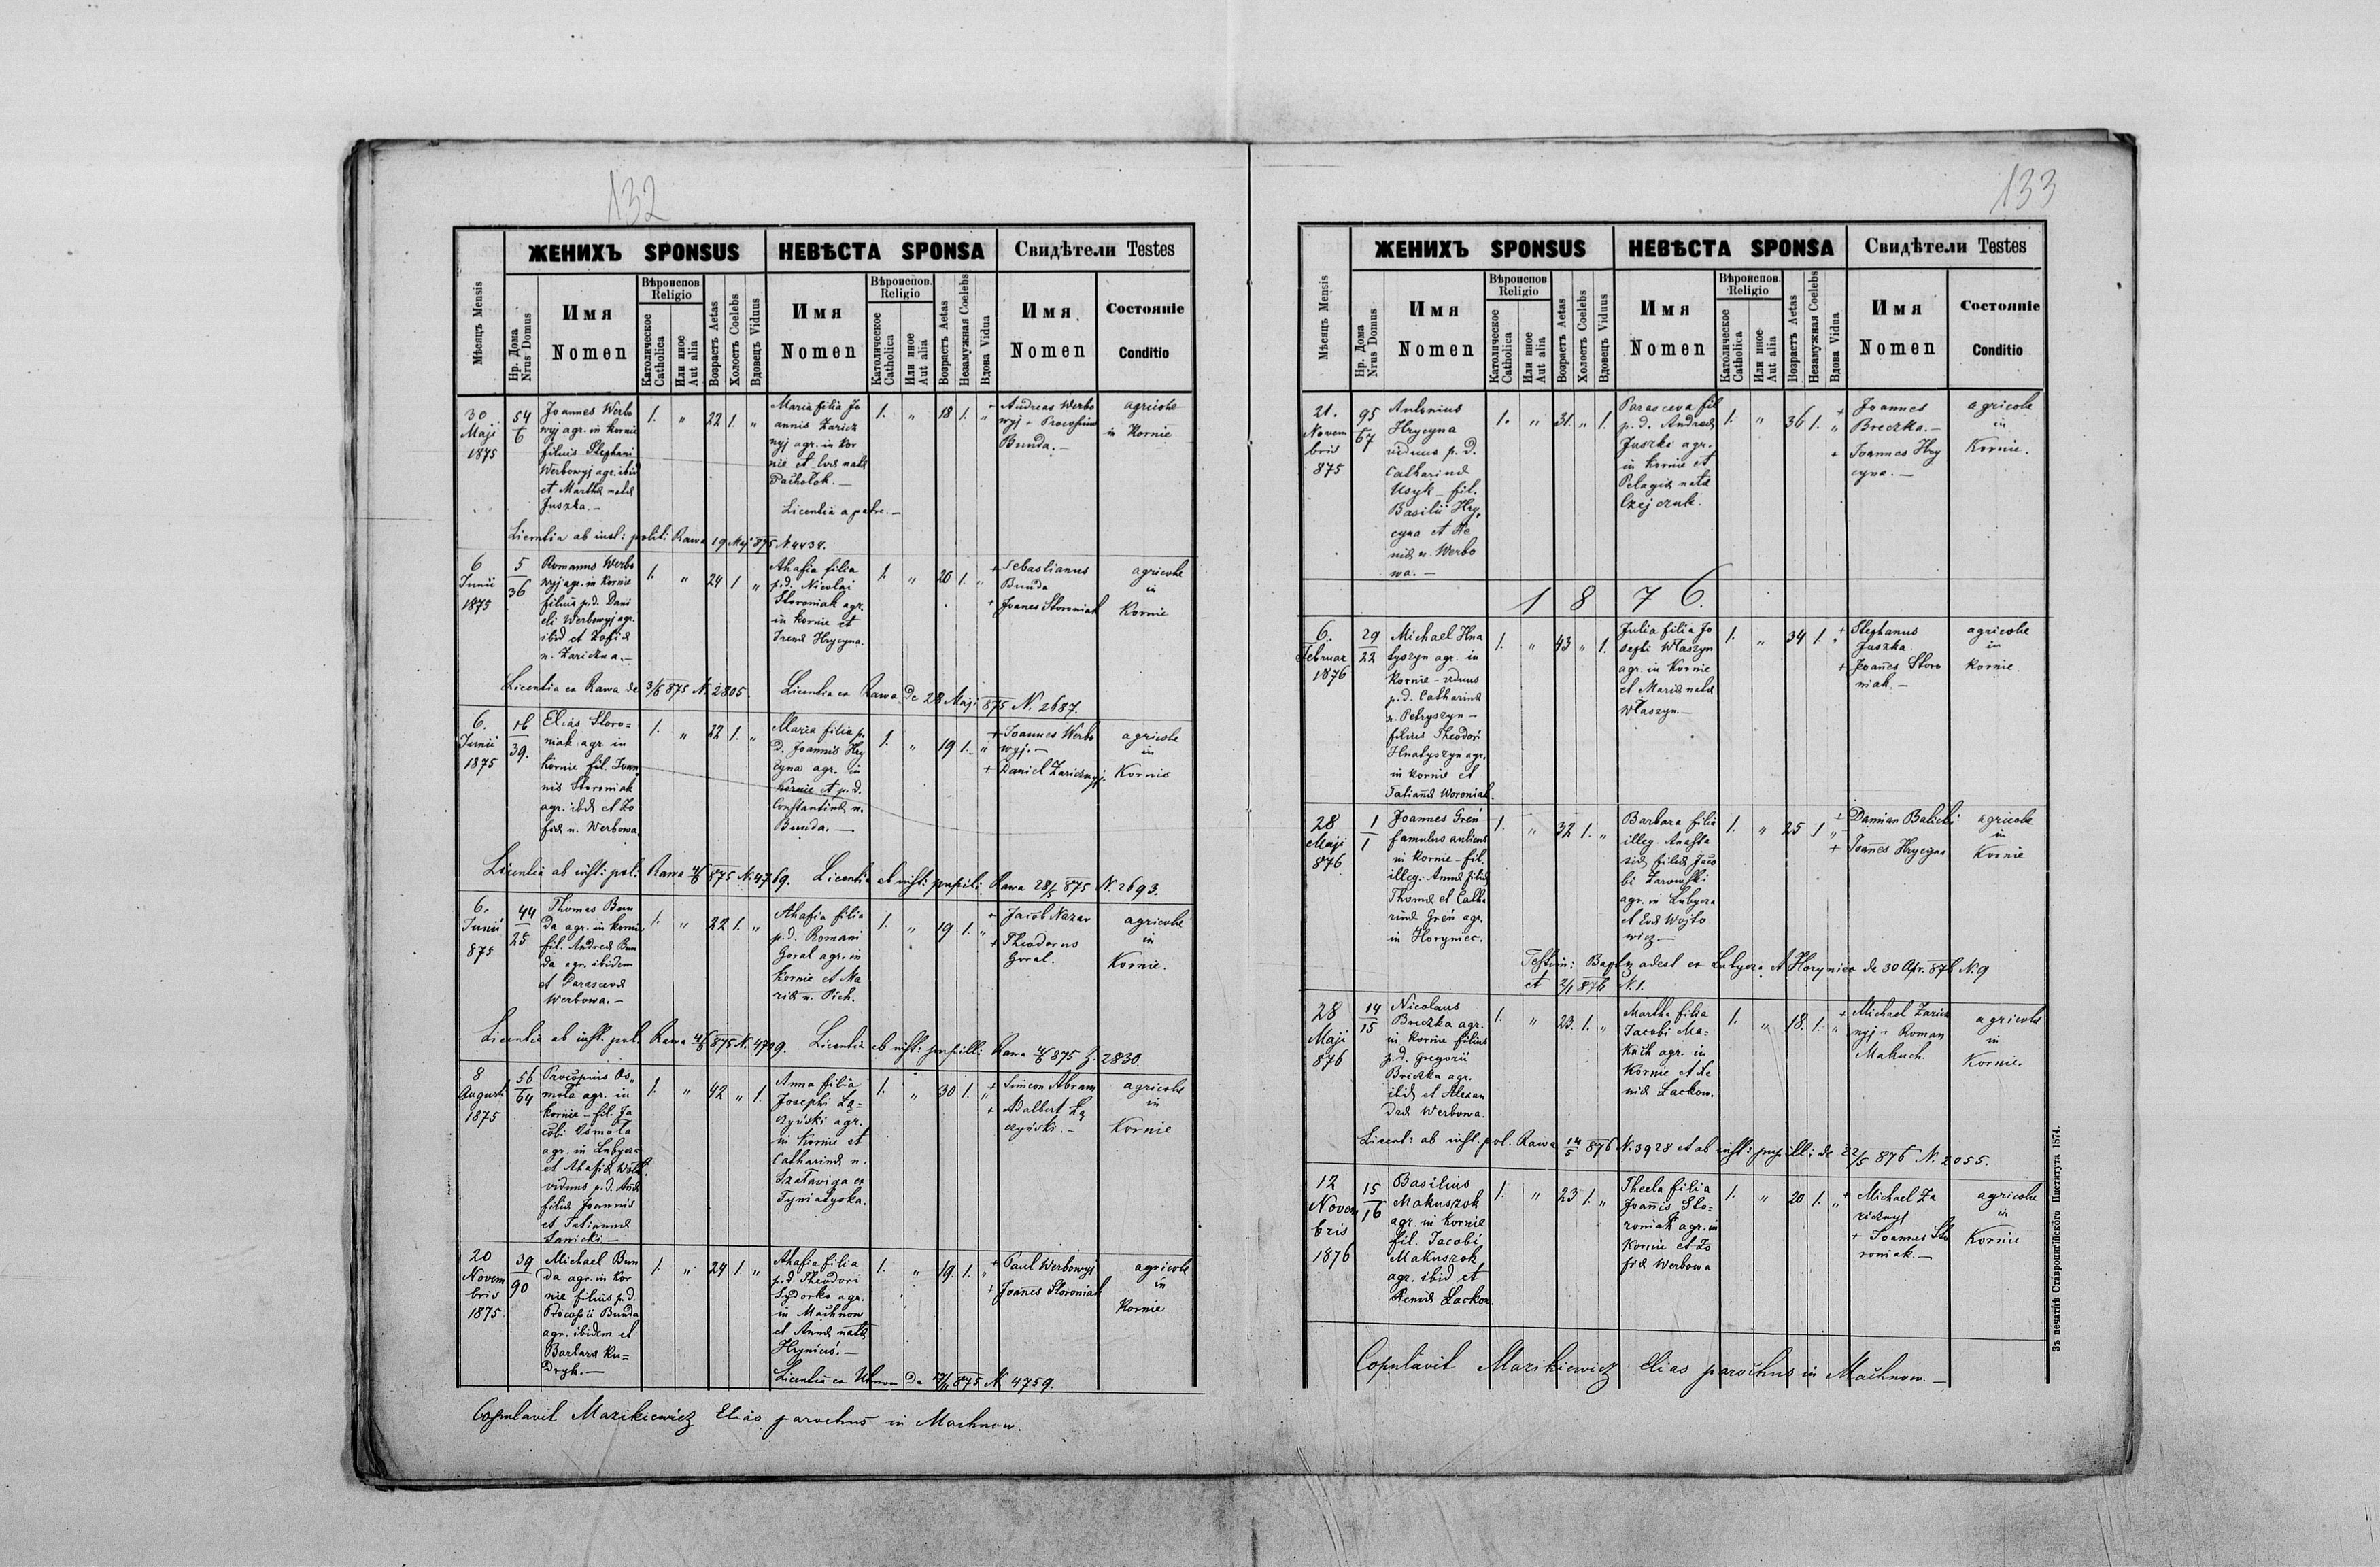 132
ЖЕНИХЪ SPONSUS
НЕВѢСТА SPONSA
Свидѣтели Testes
Мѣсяцъ Mensis
Нр. Дома
Nrus Domus
Имя
Nomen
Вѣроиспов
Religio
Католическое
Catholica
Или иное
Aut alia
Возрастъ Aetas
Холостъ Coelebs
Вдовецъ Viduus
Имя
Nomen
Вѣроиспов.
Religio
Католическое
Catholica
Или иное
Aut alia
Возрастъ Aetas
Незамужная Coelebs
Вдова Vidua
Имя
Nomen
Состояніе
Conditio
30
Maji
1875
54
6
Joannes Werbo
wyj agr. in Kornie
filius Stephani
Werbowyj agr. ibid
et Marthæ natæ
Juszka. —
1. " 22 1. "
Maria filia Jo
annis Zaricz
nyj agr. in Kor
nie et Evæ natæ
Pacholok. —
Licentia a patre. —
1. " 18 1. "
+ Andreas Werbo
wyj + Procopius
Bunda. —
agricolæ
in Kornie
Licentia ab inst: polit: Rawa 19 Maj 875 N. 4434.
6
Junii
1875
5
36
Romanus Werbo
wyj agr. in Kornie
filius p.d. Dani
eli Werbowyj agr.
ibid et Zofiæ
n. Zariczna. —
1. " 24 1 "
Ahafia filia
p.d. Nicolai
Storoniak agr.
in Kornie et
Irenæ Hrycyna.
1. " 20 1. "
+ Sebastianus
Bunda
+ Joanes Storoniak
agricolæ
in
Kornie
Licentia ex Rawa de 3/6 875 N. 2805. Licentia ex Rawa de 28 Maji 875 N. 2687.
6.
Junii
1875
16
39.
Elias Storo=
niak agr in
Kornie fil. Joan
nis Storoniak
agr. ibid et Zo
fiæ n. Werbowa
1. " 22 1. "
Maria filia p.
d. Joannis Hry
cyna agr. in
Kornie et p.d.
Constantinæ n.
Bunda. —
1. " 19 1. "
+ Joannes Werbo
wyj. —
+ Daniel Zaricznyj.
agricolæ
in
Kornie
Licentia ab inst: pol: Rawa 4/6 875 N. 4769. Licentia ab inst: pupill: Rawa 28/5 875 N. 2693.
6.
Junii
875
44
25
Thomas Bun
da agr. in Kornie
fil. Andreæ Bun
da agr. ibidem
et Parascevæ
Werbowa. —
1. " 22 1. "
Ahafia filia
p.d. Romani
Goral agr. in
Kornie et Ma
riæ n. Pich.
1. " 19 1. "
+ Jacob Nazar
+ Theodorus
Goral.
agricolæ
in
Kornie.
Licentia ab inst. pol. Rawa 4/6 875 N. 4729. Licentia ab inst: pupill: Rawa 4/6 875 2830.
8
Augusti
1875
56
64
Procopius Os„
mola agr. in
Kornie – fil. Ja
cobi Osmola
agr. in Lubycza
et Ahafiæ
viduus p.d. Annæ
filiæ Joannis
et Tatiannæ
Sawicki —
1. " 42 " 1.
Anna filia
Josephi Łą=
czyński agr.
in Kornie et
Catharinæ n.
Szataviga ex
Tymiatyska.
1. " 30 1. "
+ Simeon Abram
+ Adalbert Łą
czyński. —
agricolæ
in
Kornie
20
Novem
bris
1875
39
90
Michael Bun
da agr. in Kor
nie filius p.d.
Procopii Bunda
agr. ibidem et
Barbaræ Ku=
dryk. —
1. " 24 1. "
Ahafia filia
p.d. Theodori
Sydorko agr.
in Machnow
et Annæ natæ
Hryniuś. —
1. " 19 1. "
+ Paul Werbowyj
+ Joannes Storoniak
agricolæ
in
Kornie
Licentia ex Uhnow de 875 N 4759.
Copulavit Mazikiewicz Elias parochus in Machnow.
133
ЖЕНИХЪ SPONSUS
НЕВѢСТА SPONSA
Свидѣтели Testes
Мѣсяцъ Mensis
Нр. Дома
Nrus Domus
Имя
Nomen
Вѣроиспов
Religio
Католическое
Catholica
Или иное
Aut alia
Возрастъ Aetas
Холостъ Coelebs
Вдовецъ Viduus
Имя
Nomen
Вѣроиспов
Religio
Католическое
Catholica
Или иное
Aut alia
Возрастъ Aetas
Незамужная Coelebs
Вдова Vidua
Имя
Nomen
Состояніе
Conditio
21.
Novem
bris
875
95
67
Antonius
Hrycyna
viduus p.d.
Catharinæ
Usyk – fil.
Basilii Hry„
cyna et Xe
niæ n. Werbo
wa. —
1. " 31. " 1.
Parasceva fil
p.d. Andreæ
Juszka agr.
in Kornie et
Pelagiæ natæ
Czejczuk.
1. " 36 1. "
+ Joannes
Breczka. —
+ Joannes Hry
cyna. —
agricolæ
in
Kornie.
1876.
6.
Februar
1876
29
22
Michael Hna
tyszyn agr. in
Kornie – viduus
p.d. Catharinæ
n. Petryszyn –
filius Theodori
Hnatyszyn agr.
in Kornie et
Tatiannæ Woroniak.
1. " 43 " 1.
Julia filia Jo
sephi Właszyn
agr. in Kornie
et Mariæ natæ
Właszyn. —
1. " 34 1. "
+ Stephanus
Juszka
+ Joannes Storo
niak. —
agricolæ
in
Kornie.
28
Maji
876.
1
1
Joannes Greń
famulus aulicus
in Kornie – fil.
illeg: Annæ filiæ
Thomæ et Catha
rinæ Greń agr.
in Horyniec.
1. " 32 1. "
Barbara filia
illeg. Anasta
siæ filiæ Jaco
bi Zarowski
agr. in Lubycza
et Evæ Wojto
wicz —
1. " 25 1 "
+ Damian Balicki
+ Joannes Hrycyna
agricolæ
in
Kornie
Testim: Bapt. adest ex Lubycza et Horyniec de 30 Apr. 876 N. 9
et 2/1 876 N. 1.
28
Maji
876
14
15
Nicolaus
Breczka agr.
in Kornie filius
p.d. Gregorii
Breczka agr.
ibid et Alexan
dræ Werbowa.
1. " 23. 1. "
Martha filia
Jacobi Ma=
kuch agr. in
Kornie et Xe
niæ Lackow.
1. " 18. 1. "
+ Michael Zaricz
nyj + Roman
Makuch.
agricolæ
in
Kornie.
Licent: ab inst. pol. Rawa 14/5 876 N. 3928 et ab inst: pupill: de 22/5 876 N. 2055.
12
Novem
bris
1876
15
16
Basilius
Makuszok
agr. in Kornie
fil. Jacobi
Makuszok
agr. ibid et
Xeniæ Lackow.
1. " 23 1. "
Thecla filia
Joannis Sto=
roniak agr. in
Kornie et Zo
fiæ Werbowa
1. " 20 1. "
+ Michael Za
ricznyj
+ Joannes Sto
roniak. —
agricolæ
in
Kornie
Copulavit Mazikiewicz Elias parochus in Machnow. —
Зъ печатнѣ Ставропигійского Института 1874.